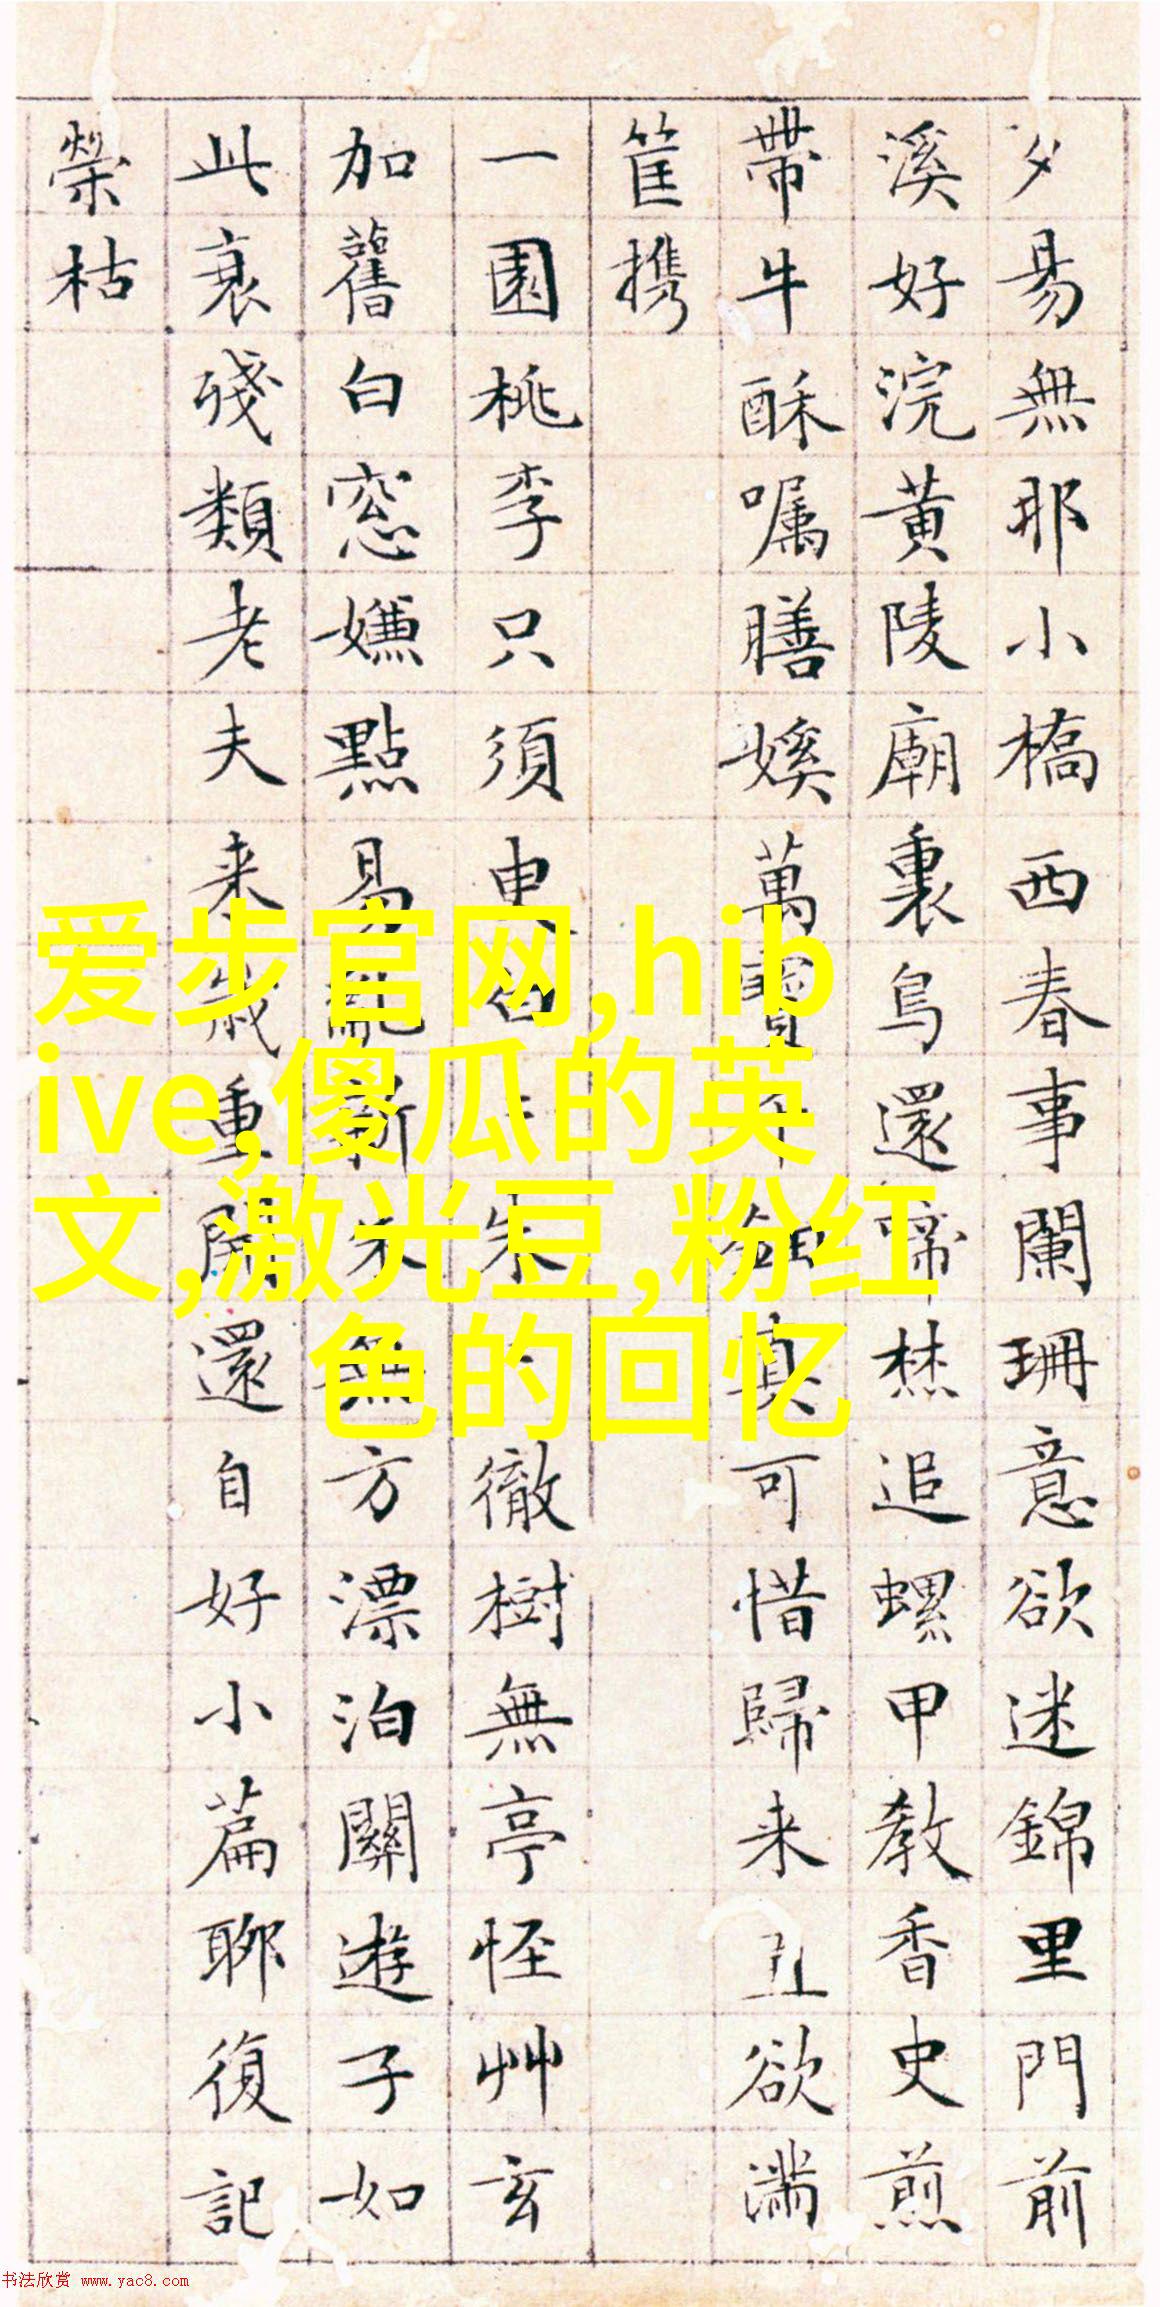 夕易無耶小橋西春事闌珊意欲迷錦里門前
溪好浣黄陵廟裏鳥還啼楚追螺甲教香史煎
帶牛酥嘱膳娭萬寶真可惜歸来丑欲满
筐携
一園桃李只須朱徹樹無亭怪艸玄
加舊白窓嫌點易新無方漂泊關遊子如
此衰殘類老夫来歲重開還自好小篇聊復記
榮枯
爱步官网,hib
ive,傻瓜的英
文,激光豆,粉红
色的回忆
书法欣赏 www.yac8.com